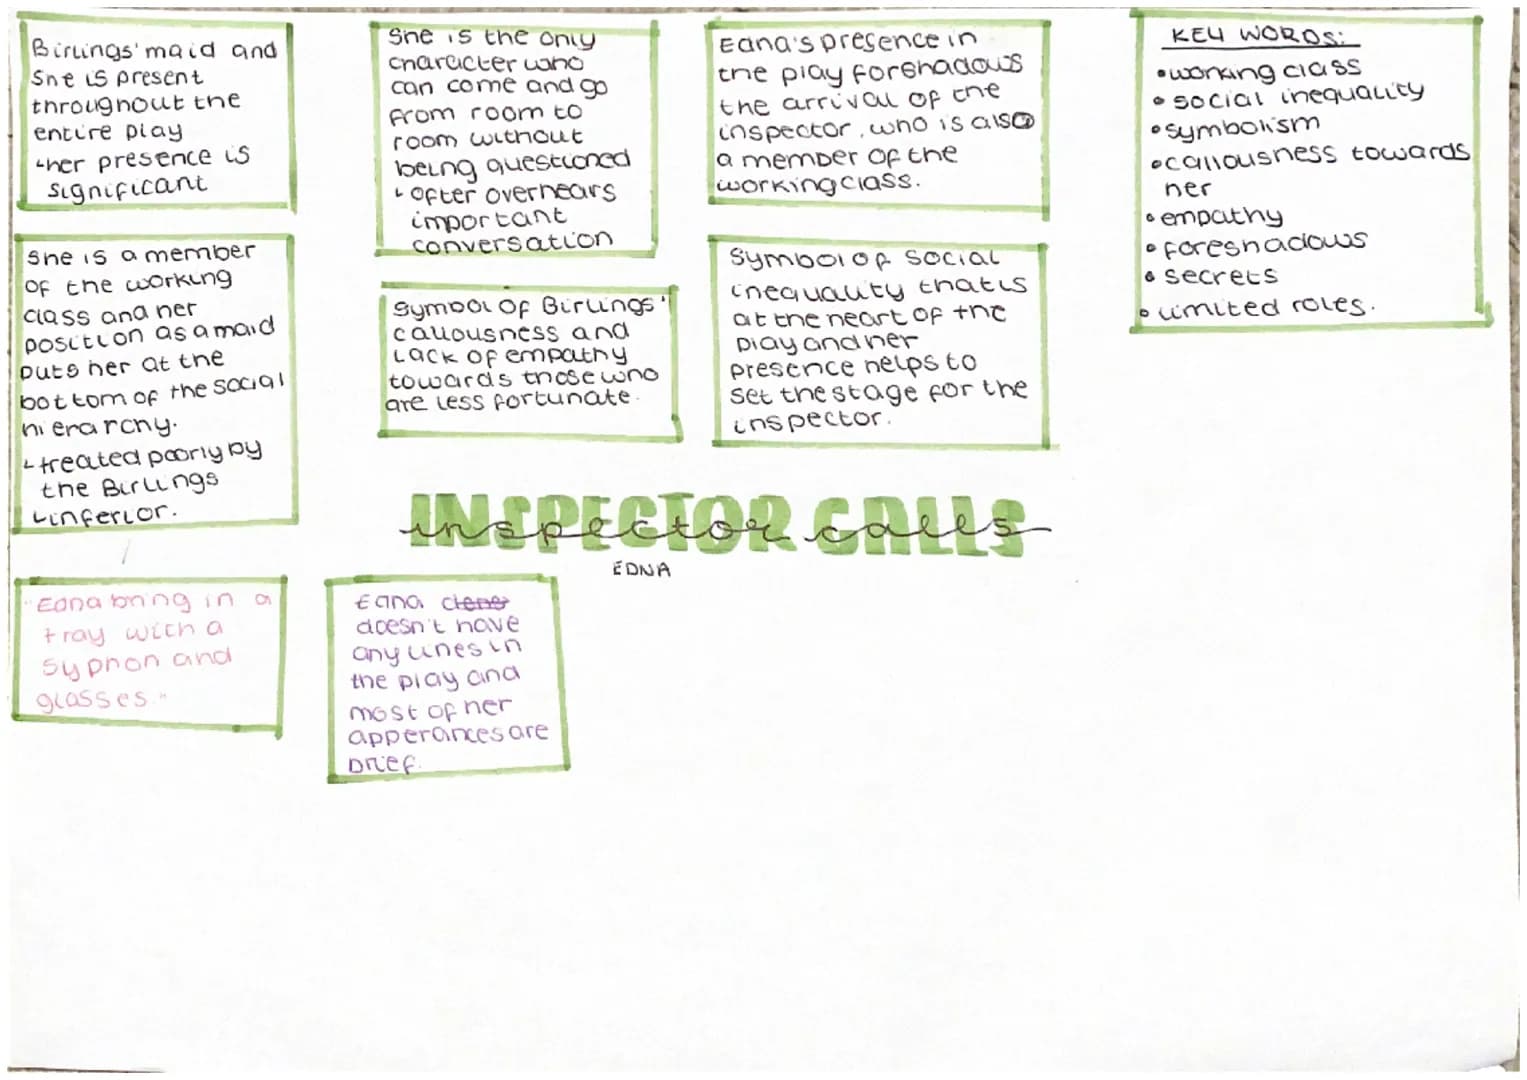 Birlings' maid and
she is present
throughout the
entire play
↳her presence is
significant
She is a member
of the working
class and her
position as a maid
puts her at the
bottom of the social
hierarchy.
↳treated poorly by
the Birlings
↳inferior.
She is the only
character who
can come and go
from room to
room without
being questioned
↳often overhears
important
conversation
Symbol of Birlings'
callousness and
lack of empathy
towards those who
are less fortunate.
Edna's presence in
the play forshadows
the arrival of the
inspector, who is also
a member of the
working class.
Symbol of social
inequality that is
at the heart of the
play and her
presence helps to
set the stage for the
inspector.
KEY WORDS:
•working class
•social inequality
•symbolism
•callousness towards
her
•empathy
•foreshadows
•secrets
•limited roles.
INSPECTOR CALLS
inspector calls
EDNA
"Edna bring in a
tray with a
syphon and
glasses."
Edna
doesn't have
any lines in
the play and
most of her
apperances are
brief.